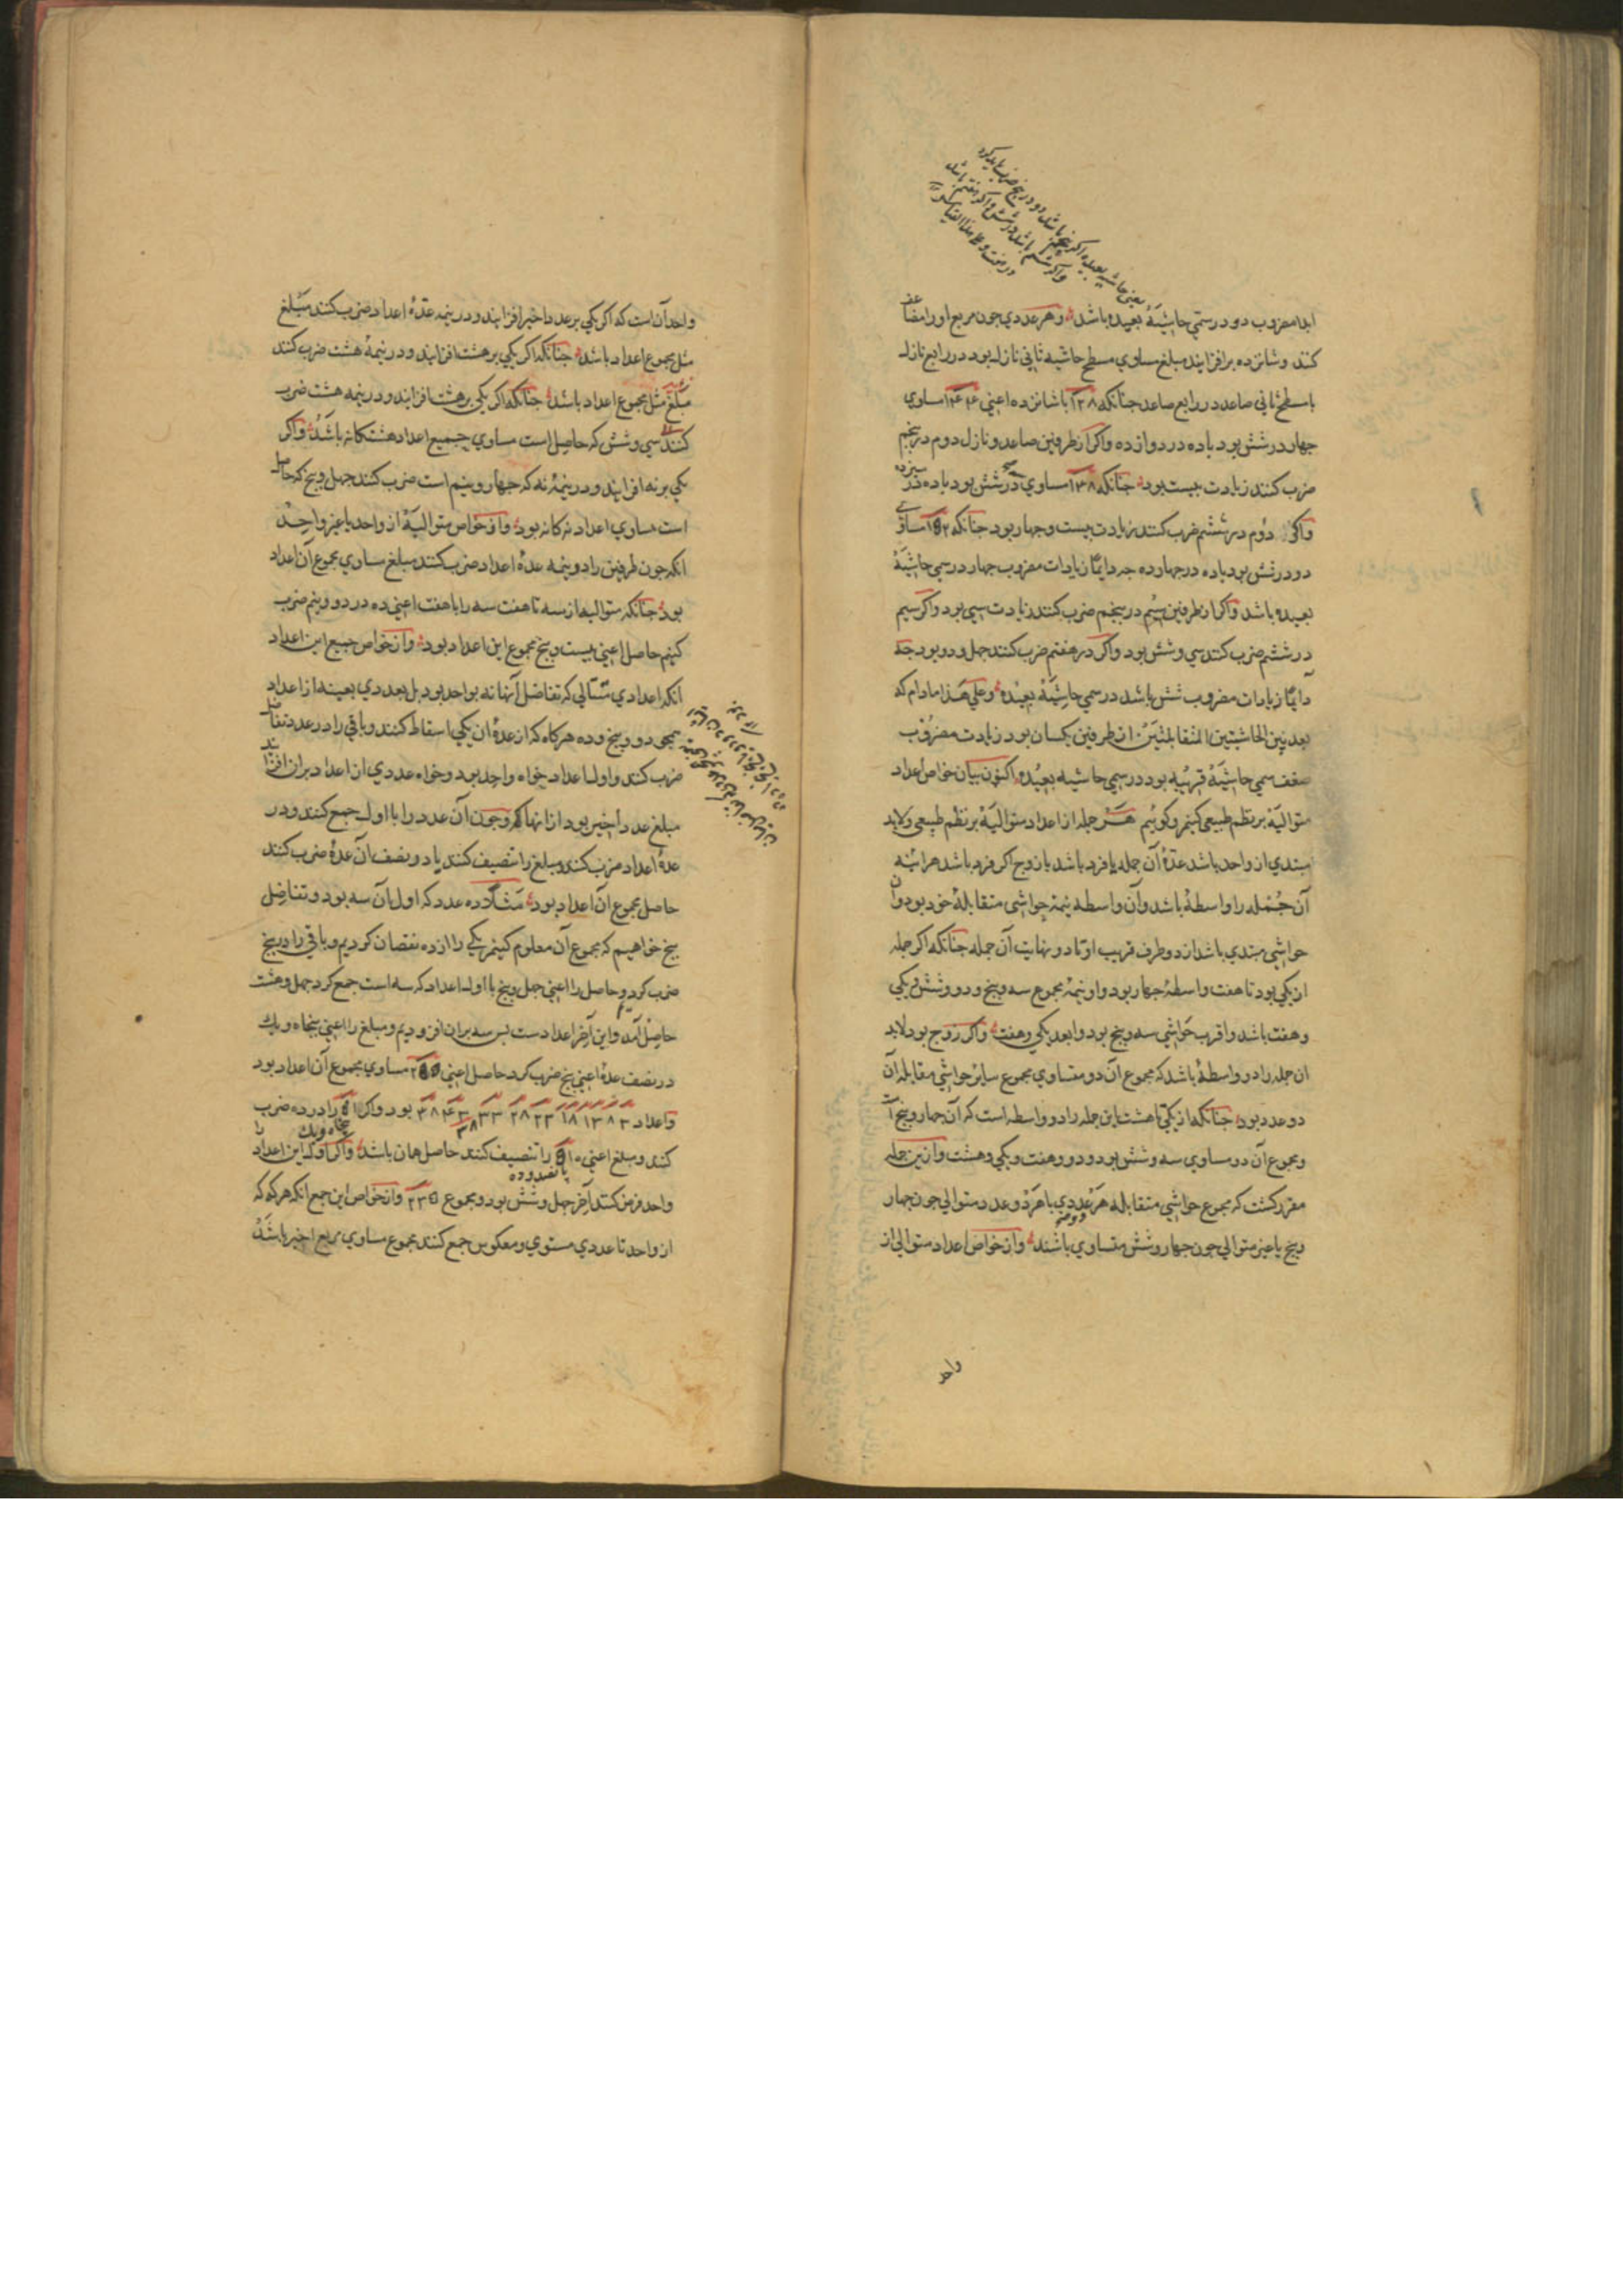 ابدا مضروب دو در سمی حاشیهٔ بعیده باشد وهر عددی جون مربع اورا مضاعف
کنند وشانزده برافزایند مبلغ مساوی مسطح حاشیه ثانی نازله بود در رابع نازله
با مسطح ثانی صاعد در رابع صاعد جنانکه ۱۲۸ با شانزده اعنی ۱۴۴ مساوی
جهار در شش بود با ده در دوازده واکر از طرفین صاعد ونازل دوم در پنجم
ضرب کنند زیادت بیست بود جنانکه ۱۴۸ مساوی در شش بود با ده در سیزده
واکر دوم در ششم ضرب کنند زیادت بیست وجهار بود جنانکه ۱۵۲ مساوی
دو در شش بود با ده در جهارده جه دایما زیادات مضروب جهار در سمی حاشیهٔ
بعیده باشد واکر از طرفین سیم در پنجم ضرب کنند زیادت سی بود واکر سیم
در ششم ضرب کنند سی وشش بود واکر در هفتم ضرب کنند جهل ودو بود جه
دایما زیادات مضروب شش باشد در سمی حاشیهٔ بعیده وعلی هذا مادام که
بعد بین الحاشیتین المتقابلتین از طرفین یکسان بود زیادت مضروب
ضعف سمی حاشیهٔ قریبه بود در سمی حاشیه بعیده اکنون بیان خواص اعداد
متوالیة بر نظم طبیعی کنیم وکوئیم هر جمله از اعداد متوالیة بر نظم طبیعی ولابد
مبتدی از واحد باشد عدة آن جمله یا فرد باشد یا زوج اکر فرد باشد هراینه
آن جمله را واسطهٔ باشد وآن واسطه نیمهٔ حواشی متقابلهٔ خود بود وآن
حواشی مبتدی باشد از دو طرف قریب او تا دو نهایت آن جمله جنانکه اکر جمله
از یکی بود تا هفت واسطهٔ جهار بود واو نیمهٔ مجموع سه وپنج ودو وشش ویکی
وهفت باشد واقرب حواشی سه وپنج بود وابعد یکی وهفت واکر زوج بود لابد
ان جمله را دو واسطهٔ باشد که مجموع آن دو متساوی مجموع سایر حواشی مقابله آن
دو عدد بود جنانکه از یکی تا هشت این جمله را دو واسطه است که آن جهار وپنج است
ومجموع آن دو مساوی سه وشش بود ودو وهفت ویکی وهشت وازین جمله
مقرر کشت که مجموع حواشی متقابله هر عددی با هر دو عدد متوالی جون جهار
وپنج یا غیر متوالی جون جهار وشش متساوی باشند وازخواص اعداد متوالی از
واحد
واحد آن است که اکر یکی بر عدد اخیر افزایند ودر نیمه عدة اعداد ضرب کنند مبلغ
مثل مجموع اعداد باشد جنانکه اکر یکی بر هشت افزایند ودر نیمهٔ هشت ضرب کنند
مبلغ مثل مجموع اعداد باشد جنانکه اکر یکی بر هشت افزایند ودر نیمه هشت ضرب
کنند سی وشش که حاصل است مساوی جمیع اعداد هشت کانه باشد واکر
یکی بر نه افزایند ودر نیمهٔ نه که جهار ونیم است ضرب کنند جهل وپنج که حاصل
است مساوی اعداد نه کانه بود وازخواص متوالیة از واحد یا غیر واحد
انکه جون طرفین را در نیمه عدة اعداد ضرب کنند مبلغ مساوی مجموع آن اعداد
بود جنانکه متوالیه از سه تا هفت سه را با هفت اعنی ده در دو ونیم ضرب
کنیم حاصل اعنی بیست وپنج مجموع این اعداد بود وازخواص جمیع این اعداد
انکه اعدادی متتالی که تفاضل آنها نه بواحد بود بل بعددی بعینه از اعداد
همجو دو وپنج وده هرکاه که از عدة ان یکی اسقاط کنند وباقی را در عدد تفاضل
ضرب کنند واول اعداد خواه واحد بود وخواه عددی از اعداد بران افزایند
مبلغ عدد اخیر بود از انها وجون آن عدد را با اول جمع کنند ودر
عدة اعداد ضرب کنند ومبلغ را تنصیف کنند یا در نصف آن عدة ضرب کنند
حاصل مجموع آن اعداد بود مثلا ده عدد که اول آن سه بود وتفاضل
پنج خواهیم که مجموع آن معلوم کنیم یکی را از ده نقصان کردیم وباقی را در پنج
ضرب کردیم وحاصل را اعنی جهل وپنج با اول اعداد که سه است جمع کرد جهل وهشت
حاصل آمد واین آخر اعدادست پس سه بران افزودیم ومبلغ را اعنی پنجاه ویک
در نصف عدة اعنی پنج ضرب کرد حاصل اعنی ۲۵۵ مساوی مجموع آن اعداد بود
واعداد ۳ ۸ ۱۳ ۱۸ ۲۳ ۲۸ ۳۳ ۳۸ ۴۳ ۴۸ بود واکر ۵۱ را در ده ضرب
کنند ومبلغ اعنی ۵۱۰ را تنصیف کنند حاصل همان باشد واکر اول این اعداد را
واحد فرض کنند آخر جهل وشش بود ومجموع ۲۳۵ وازخواص این جمع انکه هرکه که
از واحد تا عددی مستوی ومعکوس جمع کنند مجموع مساوی مربع اخیر باشد